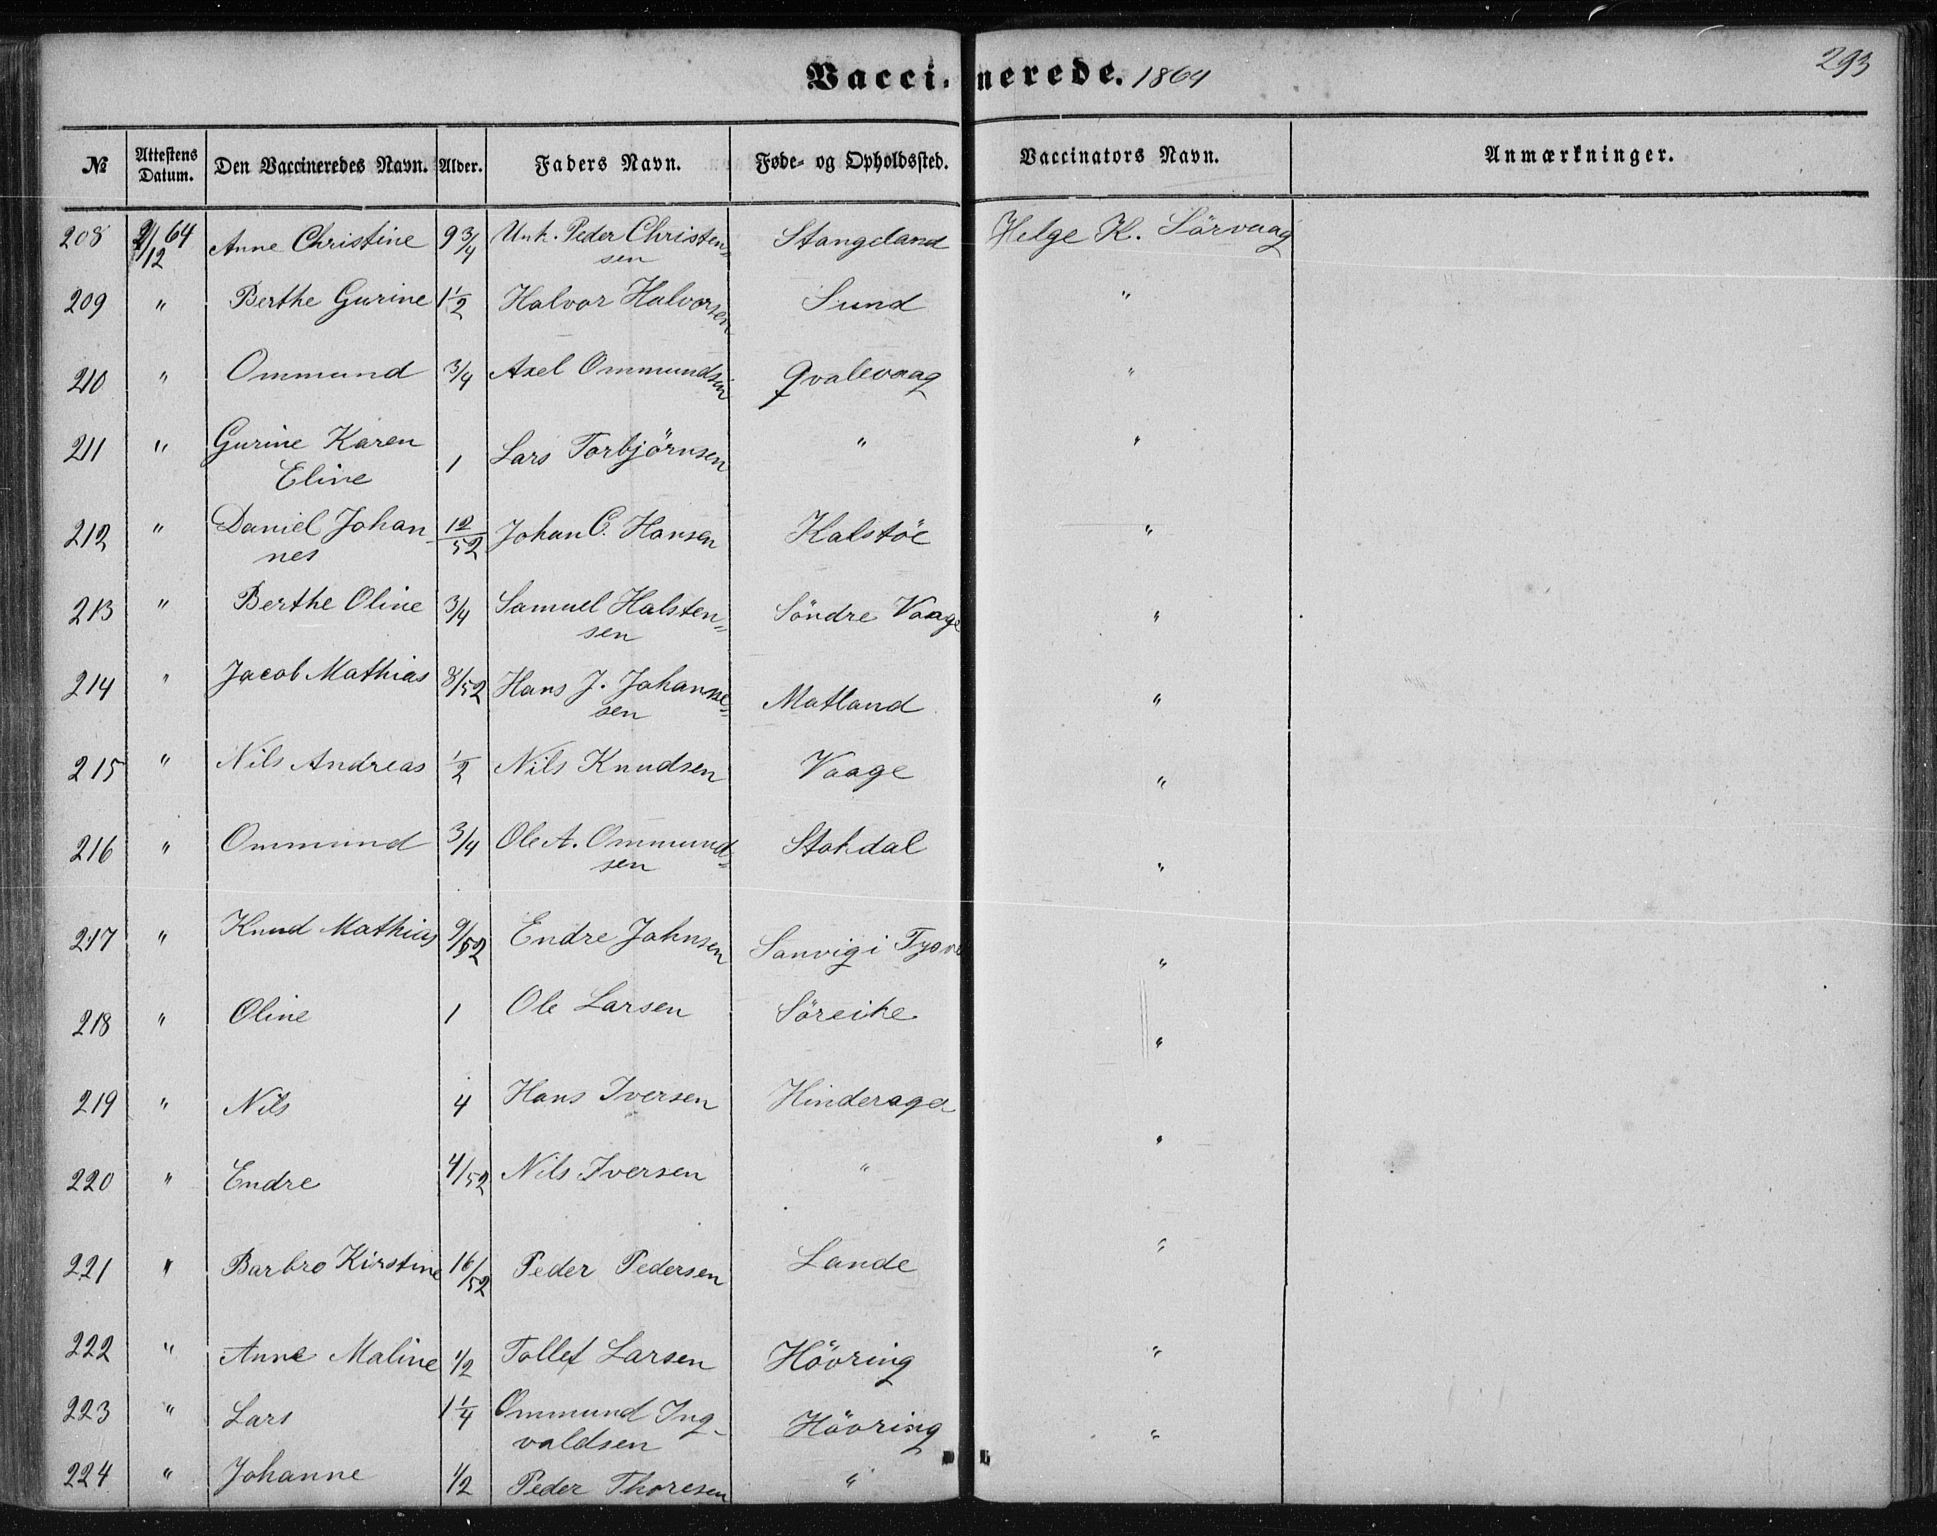 293
Vaccinerede. 1864
№ Attestens Datum. Den Vaccineredes Navn. Alder. Faders Navn. Føde- og Opholdssted. Vaccinators Navn. Anmærkninger.
208 2/12 64 Anne Christine 9 3/4 Unk. Peder Christen= Stangeland Helge K. Sörvaag
sen
209 " Berthe Gurine 1 1/2 Halvor Halvorsen Sund "
210 " Ommund 3/4 Axel Ommundsen Qvalevaag "
211 " Gurine Karen 1 Lars Torbjörnsen " "
Eline
212 " Daniel Johan 12/52 Johan C. Hansen Kalstöe "
nes
213 " Berthe Oline 3/4 Samuel Halsten= Söndre Vaage "
sen
214 " Jacob Mathias 8/52 Hans J. Johanne= Matland "
sen
215 " Nils Andreas 1/2 Nils Knudsen Vaage "
216 " Ommund 3/4 Ole A. Ommund= Stokdal "
sen
217 " Knud Mathias 9/52 Endre Johnsen Sanvig i Tysvæ "
218 " Oline 1 Ole Larsen Söreike "
219 " Nils 4 Hans Iversen Hinderager "
220 " Endre 4/52 Nils Iversen " "
221 " Barbro Kirstine 16/52 Peder Pedersen Lande "
222 " Anne Maline 1/2 Tollef Larsen Hövring "
223 " Lars 1 1/4 Ommund Ing- Hövring "
valdsen
224 " Johanne 1/2 Peder Thoresen "